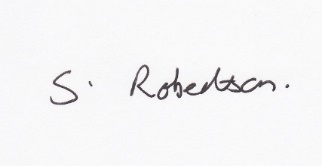 S. Robertson.